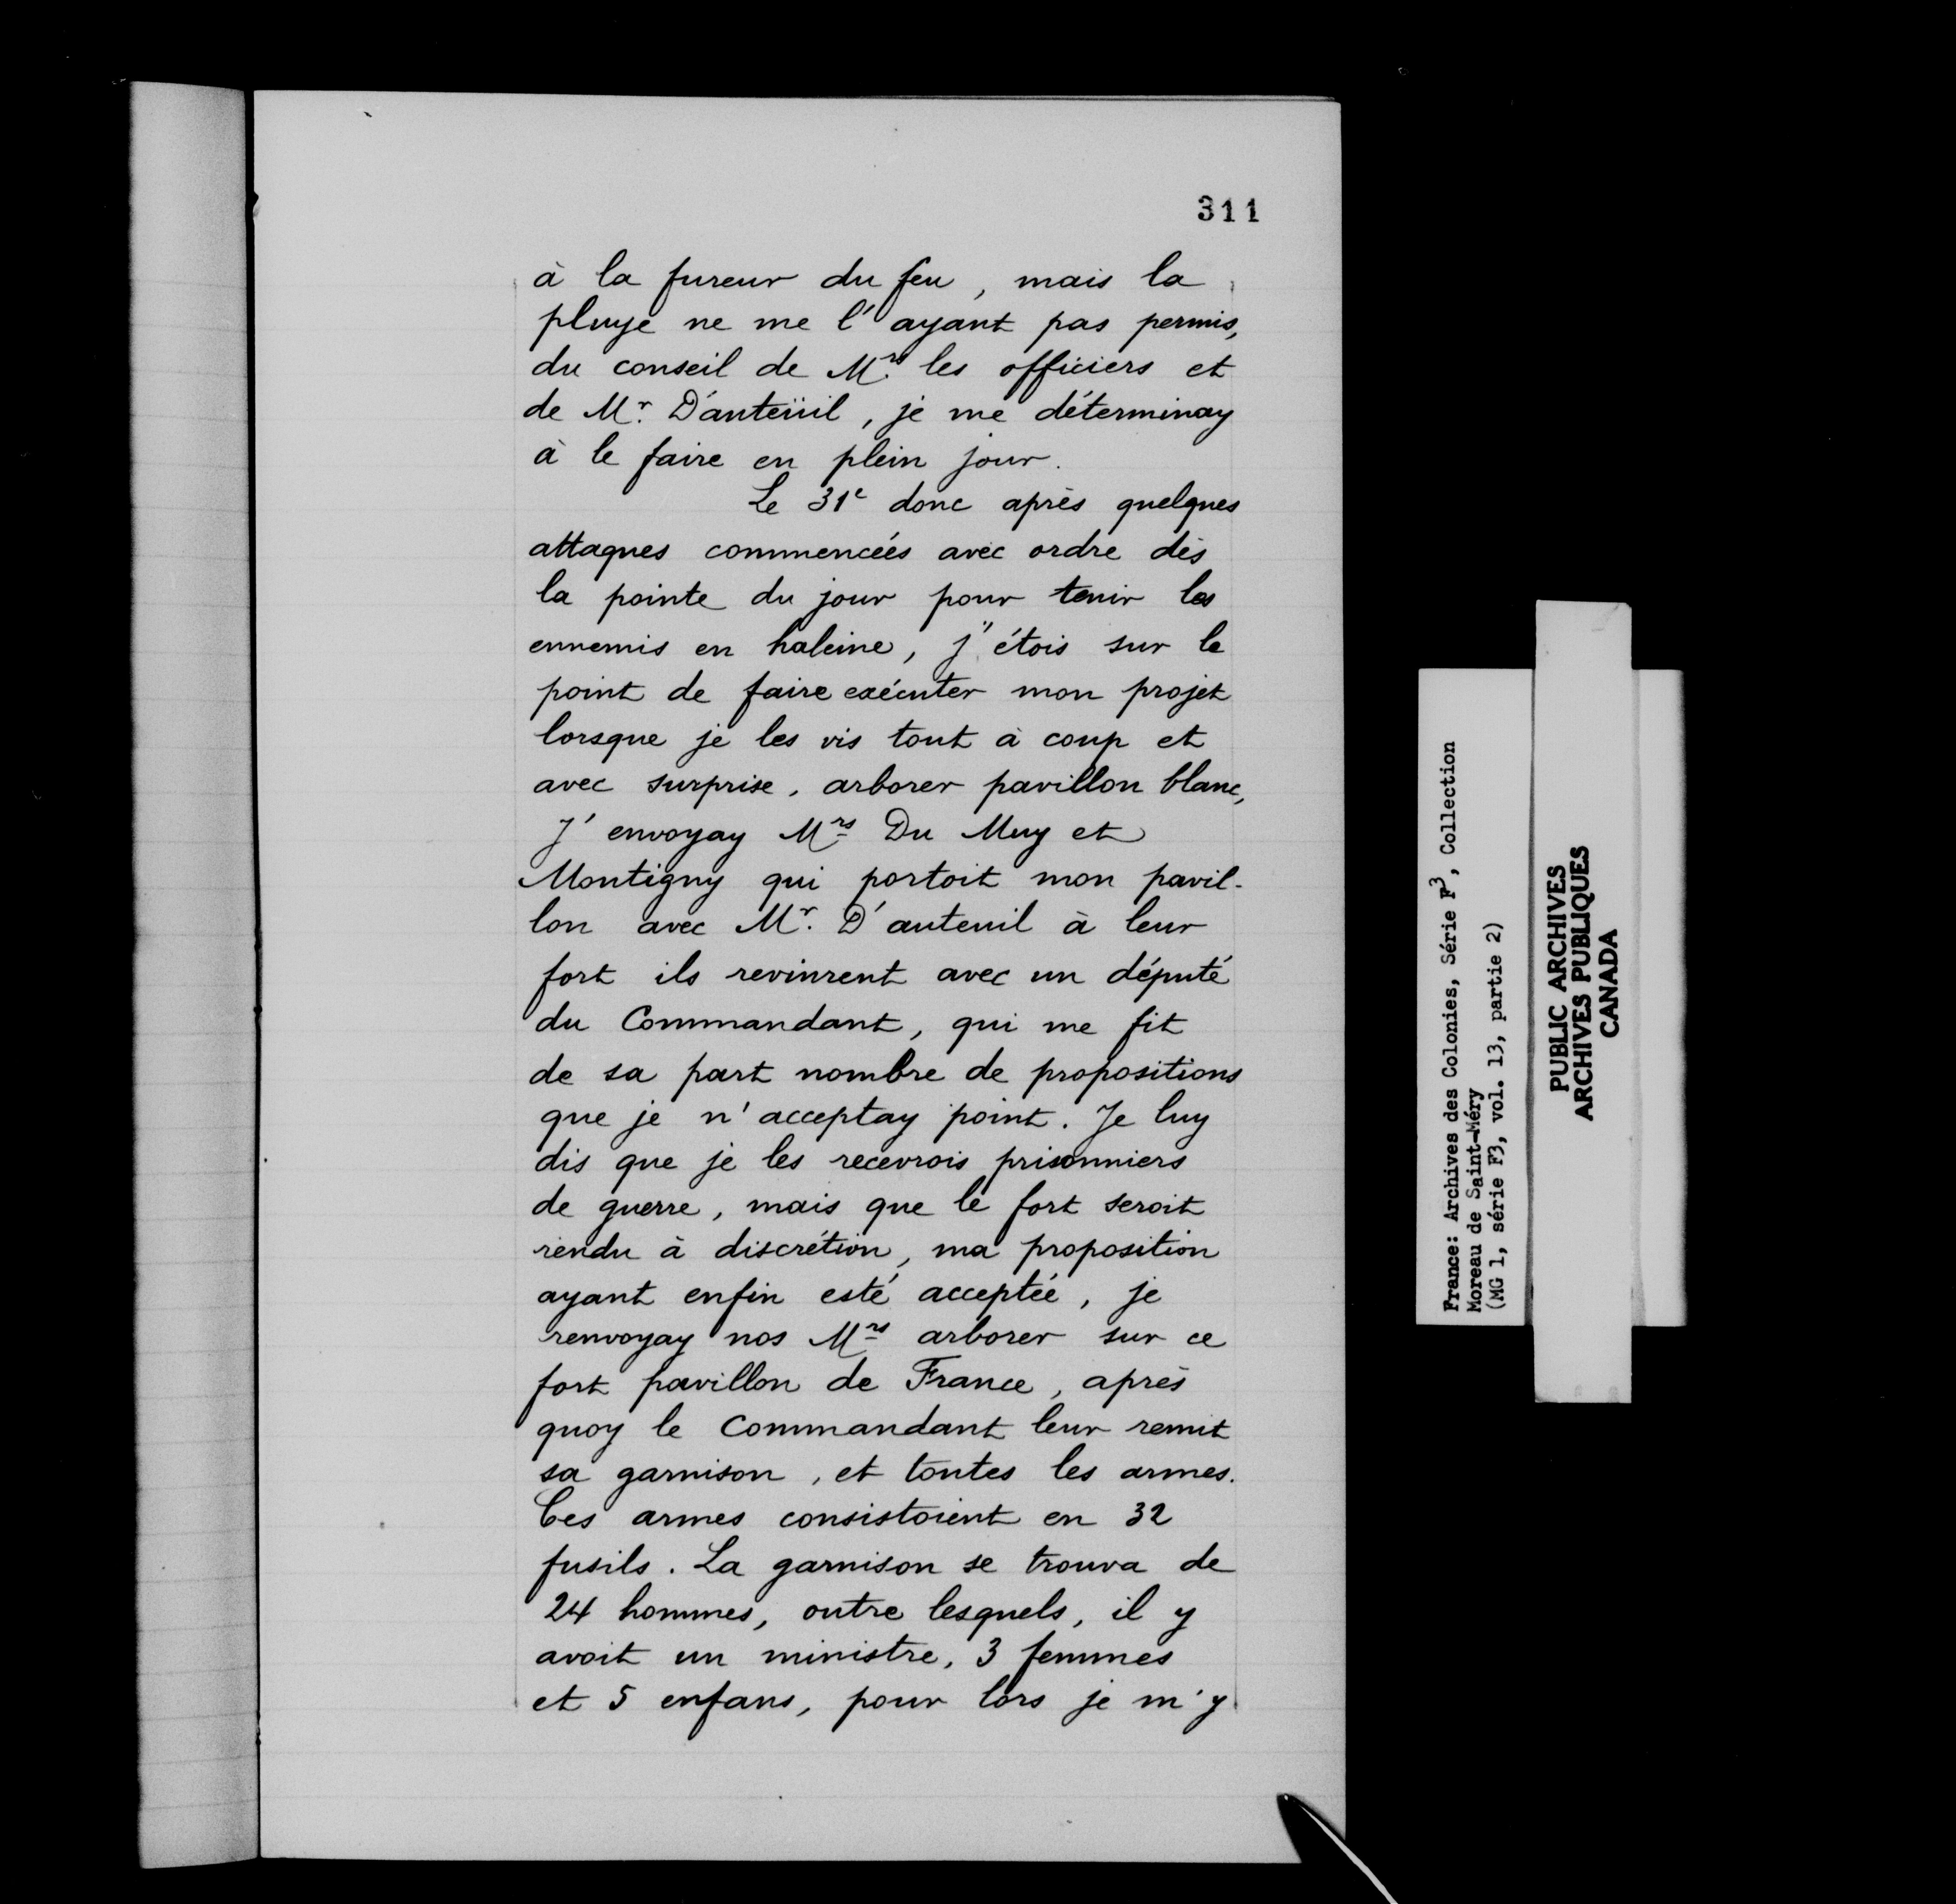 311
à la fureur du feu, mais la
pluye ne me l'ayant pas permis,
du conseil de Mrs les officiers et
de Mr. D'anteüil, je me déterminay
à le faire en plein jour.
Le 31e donc après quelques
attaques commencées avec ordre dès
la pointe du jour pour tenir les
ennemis en haleine, j'étois sur le
point de faire exécuter mon projet
lorsque je les vis tout à coup et
avec surprise, arborer pavillon blanc,
J'envoyay Mrs Du Muy et
Montigny qui portoit mon pavil-
lon avec Mr. D'auteuil à leur
fort ils revinrent avec un député
du Commandant, qui me fit
de sa part nombre de propositions
que je n'acceptay point. Je luy
dis que je les recevrois prisonniers
de guerre, mais que le fort seroit
rendu à discrétion, ma proposition
ayant enfin esté acceptée, je
renvoyay nos Mrs arborer sur ce
fort pavillon de France, après
quoy le Commandant leur remit
sa garnison, et toutes les armes.
Ces armes consistoient en 32
fusils. La garnison se trouva de
24 hommes, outre lesquels, il y
avoit un ministre, 3 femmes
et 5 enfans, pour lors je m'y
France: Archives des Colonies, Série F3, Collection
Moreau de Saint-Méry
(MG 1, série F3, vol. 13, partie 2)
PUBLIC ARCHIVES
ARCHIVES PUBLIQUES
CANADA